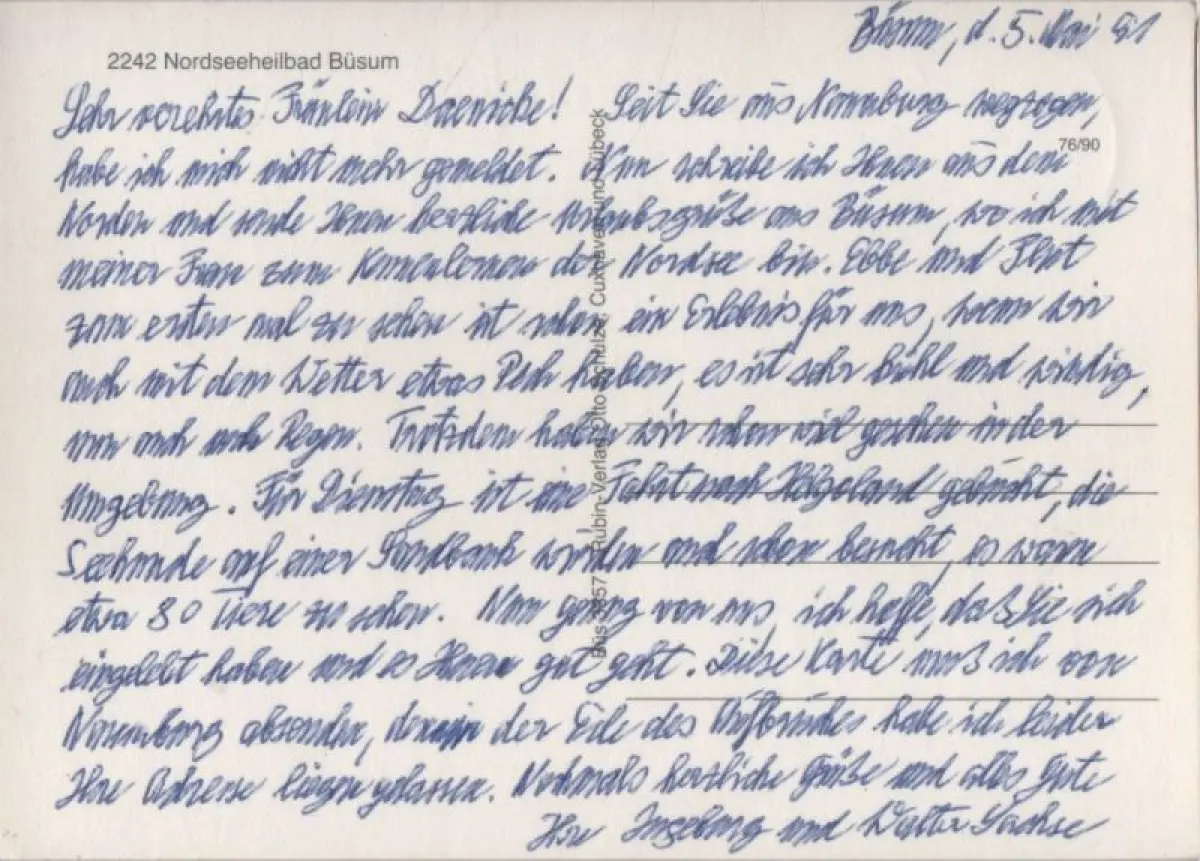 Büsum, d. 5. Mai 91
2242 Nordseeheilbad Büsum
Sehr verehrtes Fräulein Daenicke! Seit Sie aus Naumburg wegzogen,
76/90
habe ich mich nicht mehr gemeldet. Nun schreibe ich Ihnen aus dem
Norden und sende Ihnen herzliche Urlaubsgrüße aus Büsum, wo ich mit
meiner Frau zum Kennenlernen der Nordsee bin. Ebbe und Flut
zum ersten mal zu sehen ist schon ein Erlebnis für uns, wenn wir
auch mit dem Wetter etwas Pech haben, es ist sehr kühl und windig,
nun auch noch Regen. Trotzdem haben wir schon viel gesehen in der
Umgebung. Für Dienstag ist eine Fahrt nach Helgoland gebucht, die
Seehunde auf einer Sandbank wurden auch schon besucht, es waren
etwa 30 Tiere zu sehen. Nun genug von uns, ich hoffe, daß Sie sich
eingelebt haben und es Ihnen gut geht. Diese Karte muß ich von
Naumburg absenden, denn in der Eile des Aufbruches habe ich leider
Ihre Adresse liegen gelassen. Nochmals herzliche Grüße und alles Gute
Ihre Ingeburg und Walter Sachse
Rubin-Verlag Otto Schulze, Cuxhaven und Lübeck